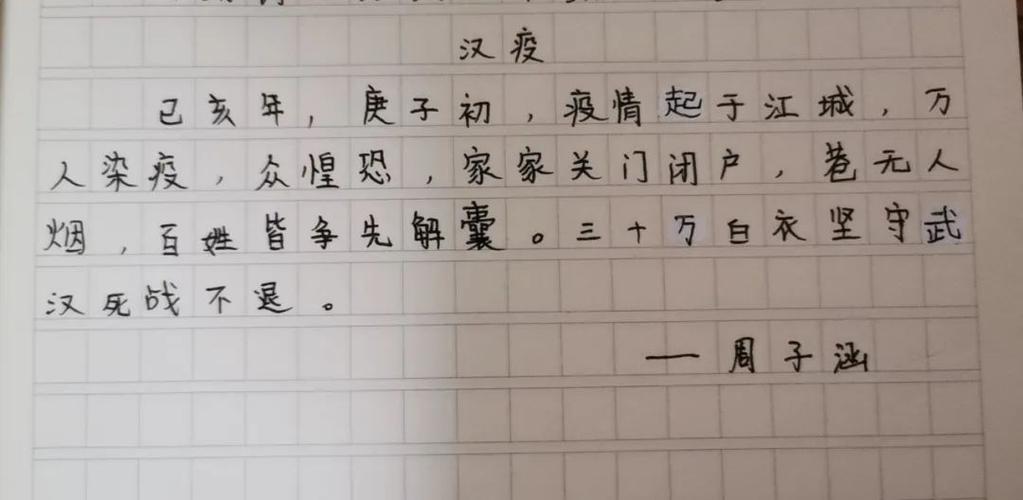 汉疫
己亥年，庚子初，疫情起于江城，万
人染疫，众惶恐，家家关门闭户，巷无人
烟，百姓皆争先解囊。三十万白衣坚守武
汉死战不退。
——周子涵